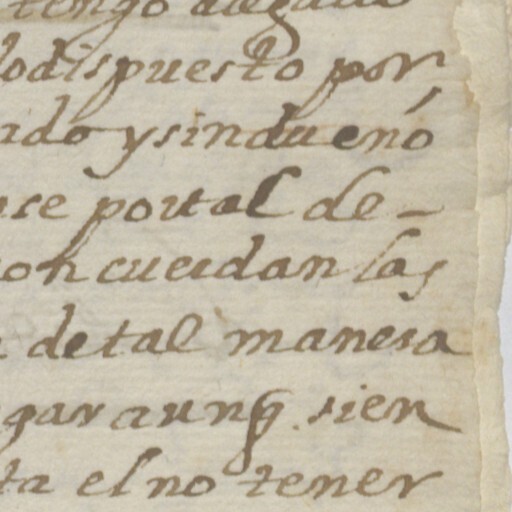 tengo alegado
lo dispuesto por
ado y sin dueño
se por tal de-
concuerdan las
de tal manera
gar aunq sien
ta el no tener